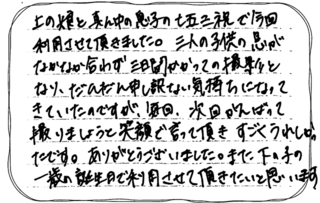 上の娘と真ん中の息子の七五三祝で今回
利用させて頂きました。三人の子供の息が
なかなか合わず三日間かかっての撮影と
なり、だんだん申し訳ない気持ちになって
きていたのですが毎回、次回がんばって
撮りましょうと笑顔で言って頂きすごくうれしかっ
たです。ありがとうございました。また下の子の
一歳の誕生日で利用させて頂きたいと思います